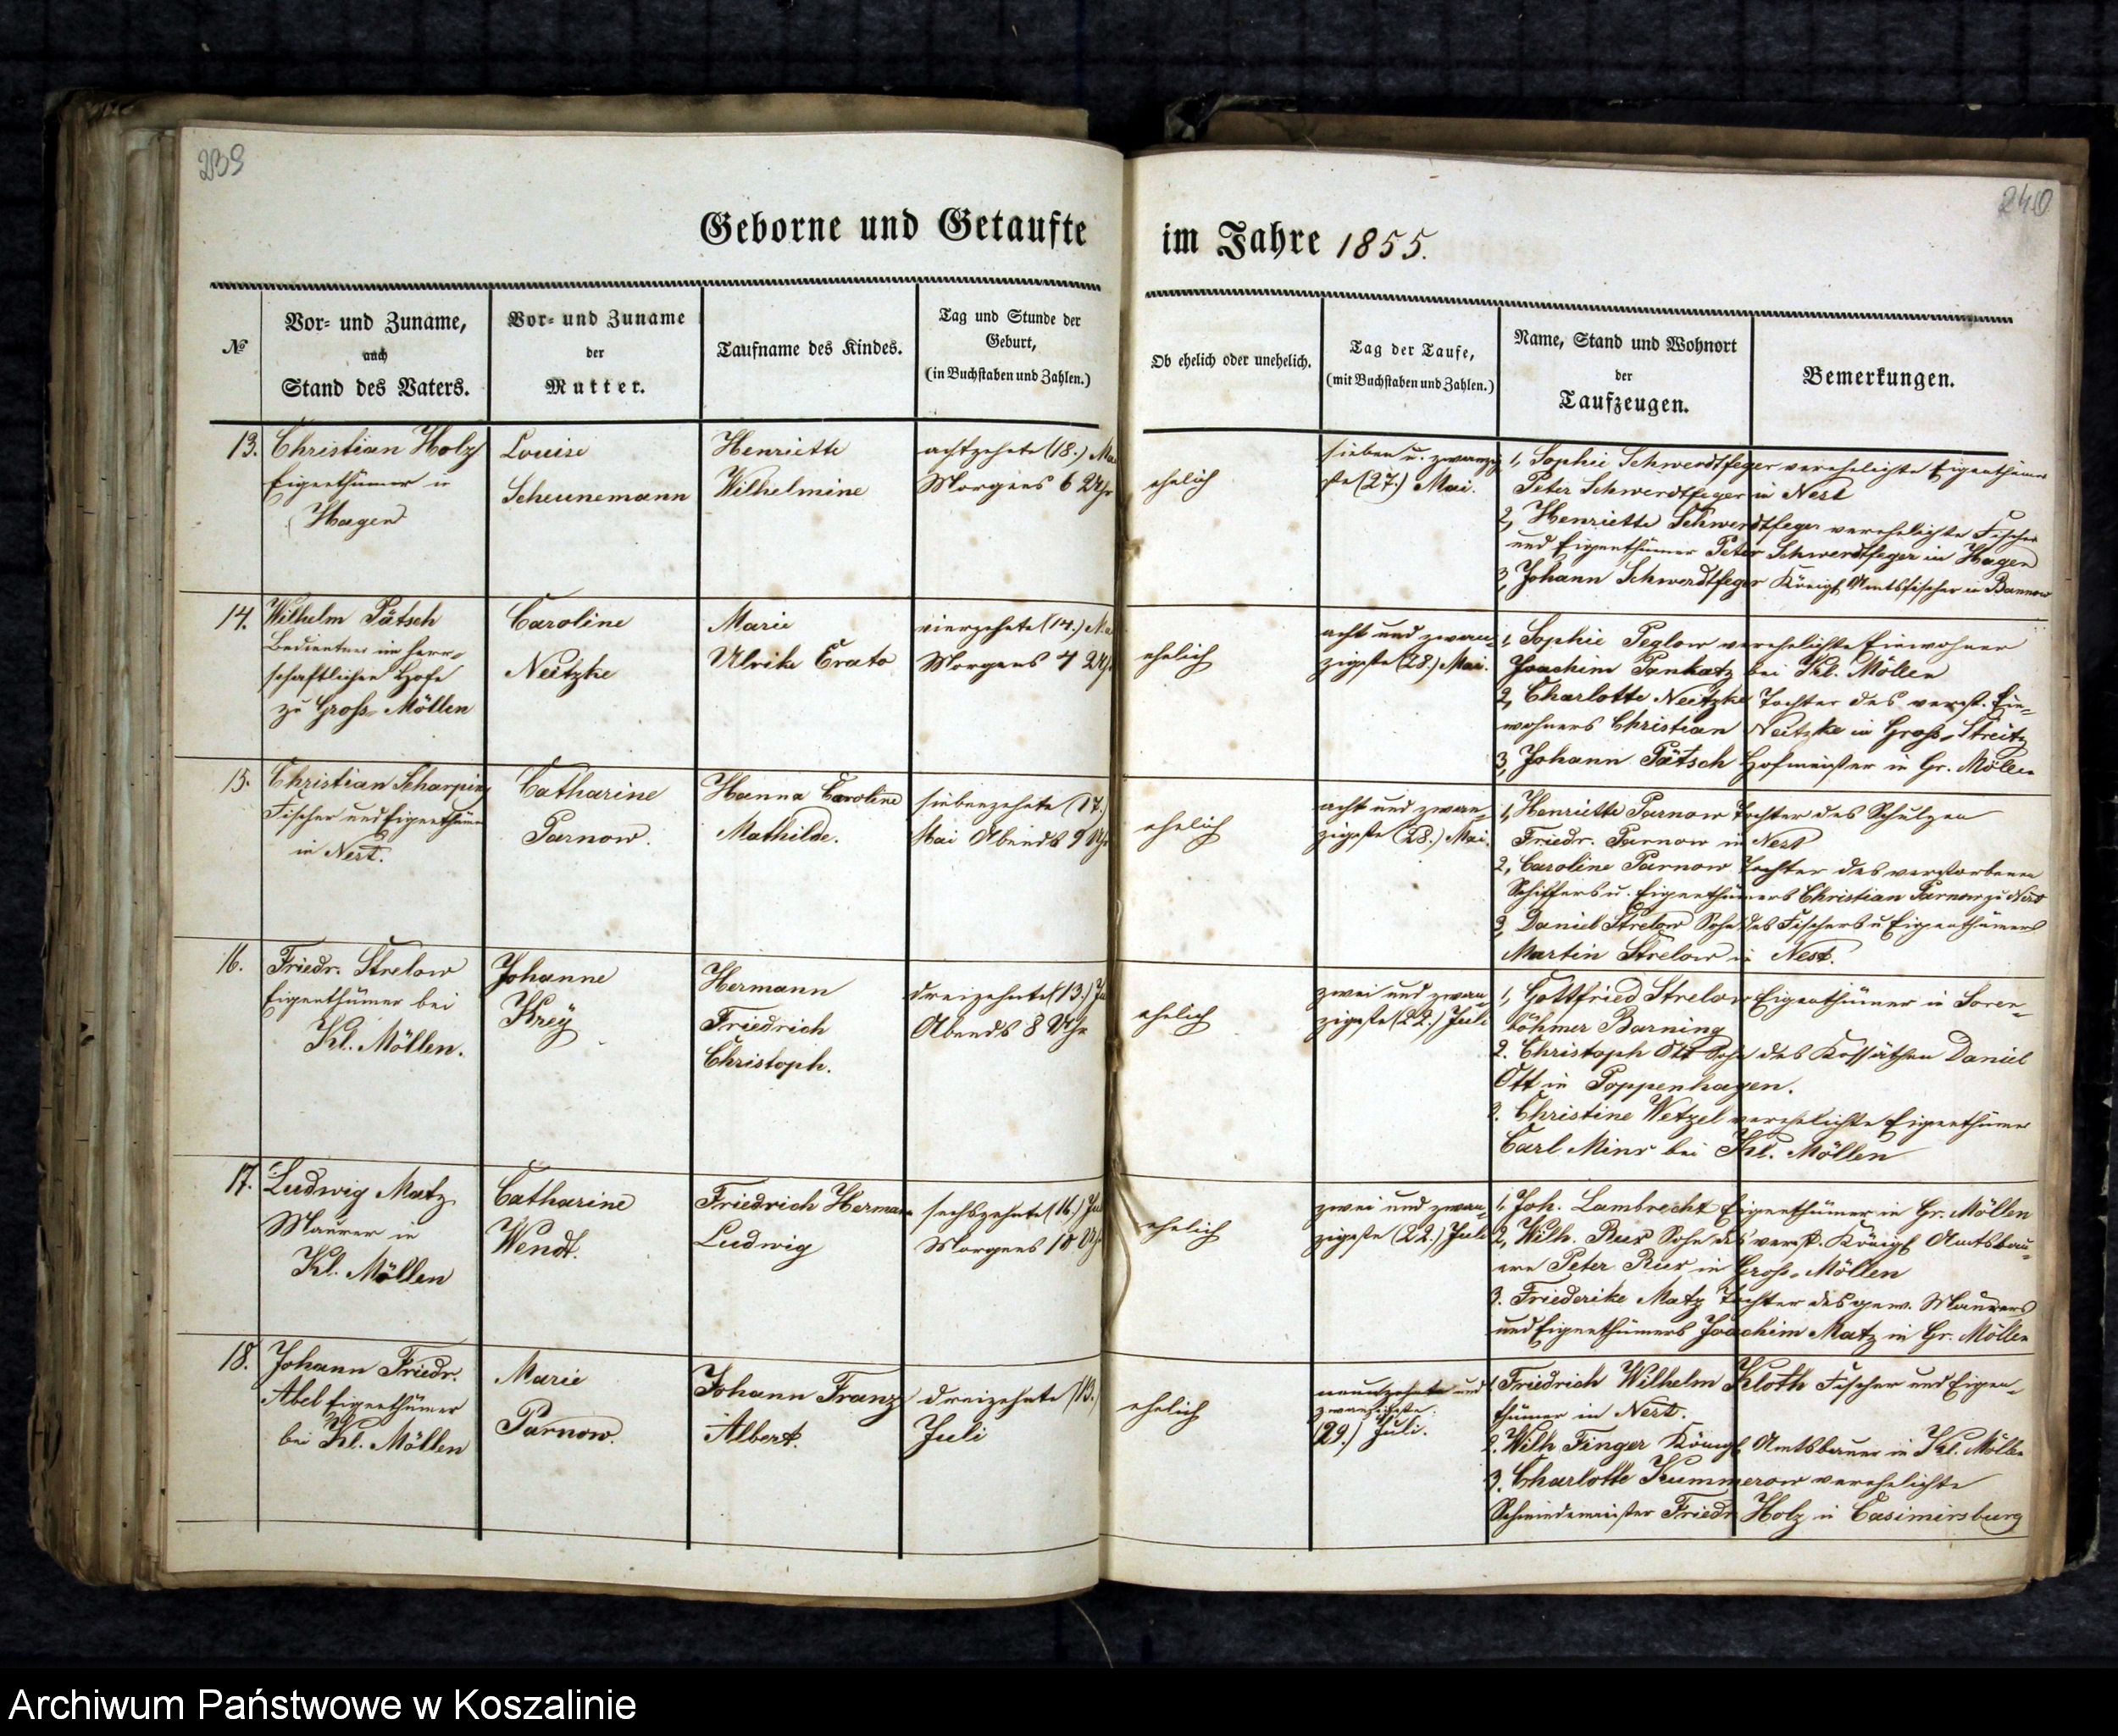 239
240
Geborne und Getaufte im Jahre 1855.
№
Vor- und Zuname,
auch
Stand des Vaters.
Vor- und Zuname
der
Mutter.
Taufname des Kindes.
Tag und Stunde der
Geburt,
(in Buchstaben und Zahlen.)
Ob ehelich oder unehelich.
Tag der Taufe,
(mit Buchstaben und Zahlen.)
Name, Stand und Wohnort
der
Taufzeugen.
Bemerkungen.
13.
Christian Holz
Eigenthümer in
Hagen
Louise
Scheunemann
Henriette
Wilhelmine
achtzehnte (18.) Mai
Morgens 6 Uhr
ehelich
sieben u. zwanzig
ste (27.) Mai.
1, Sophie Schwerdtfeger verehelichte Eigenthümer
Peter Schwerdtfeger in Nest
2, Henriette Schwerdtfeger verehelichte Fischer
und Eigenthümer Peter Schwerdtfeger in Hagen
3, Johann Schwerdtfeger Königl. Amtsfischer in
14.
Wilhelm Pätsch
Bedienter im herr-
schaftlichen Hofe
zu Groß-Möllen
Caroline
Neitzke
Marie
Ulrike Erato
vierzehnte (14.)
Morgens 4 Uhr
ehelich
acht und zwan-
zigste (28.) Mai.
1, Sophie Peglow verehelichte Einwohner
Joachim Pankatz bei Kl. Möllen
2, Charlotte Neitzke Tochter des verst. Ein-
wohners Christian Neitzke in Groß-Streitz
3, Johann Pätsch Hofmeister in Gr. Möllen
15.
Christian Scharping
Fischer und Eigenthümer
in Nest.
Catharine
Parnow.
Hanna Caroline
Mathilde.
siebenzehnte (17.)
Mai Abends 9 Uhr
ehelich
acht und zwan-
zigste (28.) Mai.
1, Henriette Parnow Tochter des Schulzen
Friedr. Parnow in Nest
2, Caroline Parnow Tochter des verstorbenen
Schiffers u. Eigenthümers Christian Parnow zu Nest
3, Daniel Strelow Sohn des Fischers u Eigenthümers
Martin Strelow in Nest.
16.
Friedr. Strelow
Eigenthümer bei
Kl. Möllen.
Johanne
Krey
Hermann
Friedrich
Christoph.
dreizehnte (13.)
Abends 8 Uhr
ehelich
zwei und zwan-
zigste (22.) Juli
1, Gottfried Strelow Eigenthümer in Soren-
böhmer Barning
2. Christoph Ott Sohn des Kossäthen Daniel
Ott in Poppenhagen.
3. Christine Wetzel verehelichte Eigenthümer
Carl Mins bei Kl. Möllen
17.
Ludwig Matz
Maurer in
Kl. Möllen
Catharine
Wendt.
Friedrich Hermann
Ludwig
sechszehnte (16.)
Morgens 10 Uhr
ehelich
zwei und zwan-
zigste (22.) Juli
1, Joh. Lambrecht Eigenthümer in Gr. Möllen
2, Wilh. Rux Sohn des verst. Königl Amtsbau-
ern Peter Rux in Groß-Möllen
3. Friederike Matz Tochter des gew. Maurers
und Eigenthümers Joachim Matz in Gr. Möllen
18.
Johann Friedr.
Abel Eigenthümer
bei Kl. Möllen
Marie
Parnow.
Johann Franz
Albert.
dreizehnte (13.)
Juli
ehelich
neunzehnte und
zwanzigste
(29.) Juli.
Friedrich Wilhelm Kloth Fischer und Eigen-
thümer in Nest.
2. Wilh Finger Königl Amtsbauer in Kl. Möllen
3. Charlotte Kummerow verehelichte
Schmiedemeister Friedr Holz in Casimirsburg
Archiwum Państwowe w Koszalinie